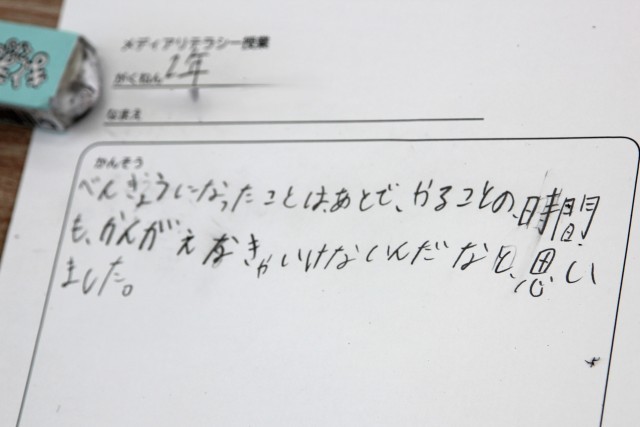 メディアリテラシー授業
がくねん 2年
なまえ
かんそう
べんぎょうになったことは、あとで、やることの、時間
も、かんがえなきゃいけないんだなと、思い
ました。